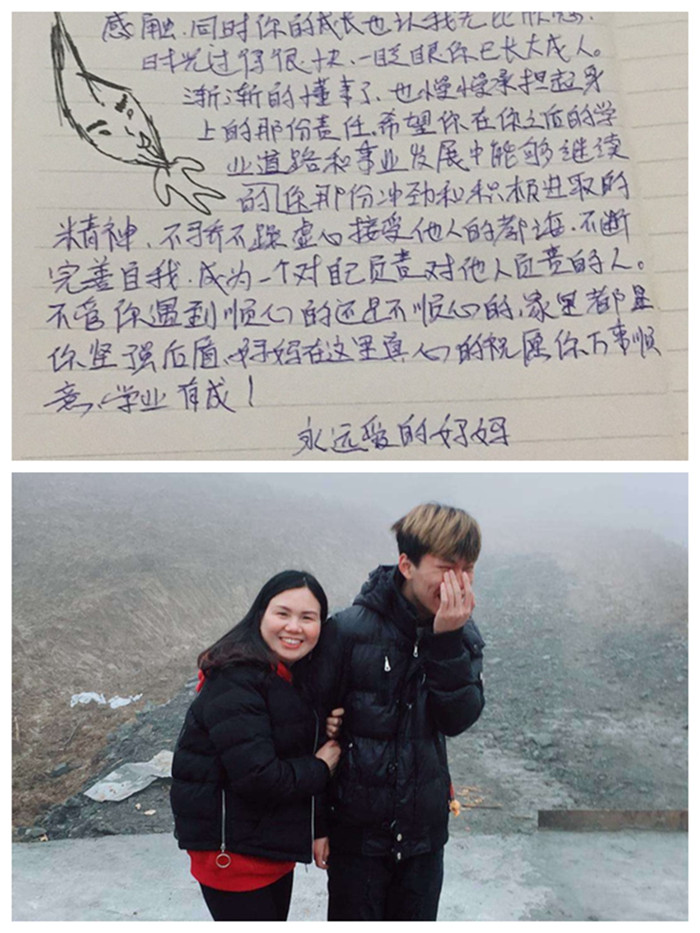 感触.同时你的成长也让我无比欣慰.
时光过得很快.一眨眼你已长大成人。
渐渐的懂事了.也慢慢承担起身
上的那份责任.希望你在你之后的学
业道路和事业发展中能够继续
的你那份冲劲和积极进取的
精神、不骄不躁虚心接受他人的教诲.不断
完善自我.成为一个对自己负责对他人负责的人。
不管你遇到顺心的还是不顺心的,家里都是
你坚强后盾、妈妈在这里真心的祝愿你万事顺
意、学业有成!
永远爱的妈妈